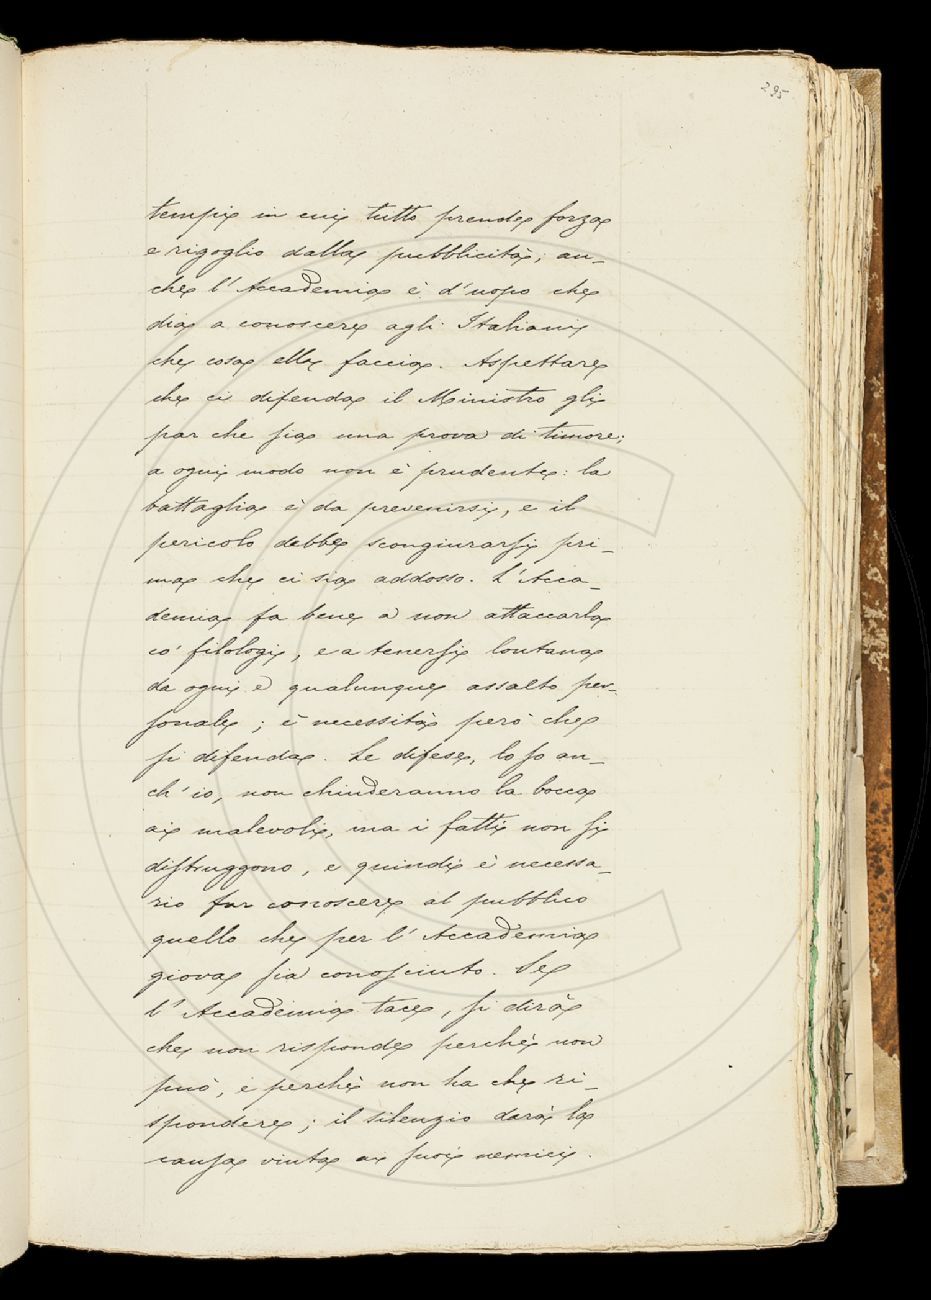 295
tempi in cui tutto prende forza
e rigoglio dalla pubblicità; an-
che l'Accademia è d'uopo che
dia a conoscere agli Italiani
che cosa ella faccia. Aspettare
che ci difenda il Ministro gli
par che sia una prova di timore;
a ogni modo non è prudente: la
battaglia è da prevenirsi, e il
pericolo debbe scongiurarsi pri-
ma che ci sia addosso. L'Acca-
demia fa bene a non attaccarla
co' filologi, e a tenersi lontana
da ogni e qualunque assalto per-
sonale; è necessità però che
si difenda. Le difese, lo so an-
ch'io, non chiuderanno la bocca
ai malevoli, ma i fatti non si
distruggono, e quindi è necessa-
rio far conoscere al pubblico
quello che per l'Accademia
giova sia conosciuto. Se
l'Accademia tace, si dirà
che non risponde perchè non
può, e perchè non ha che ri-
spondere; il silenzio darà la
causa vinta ai suoi nemici.